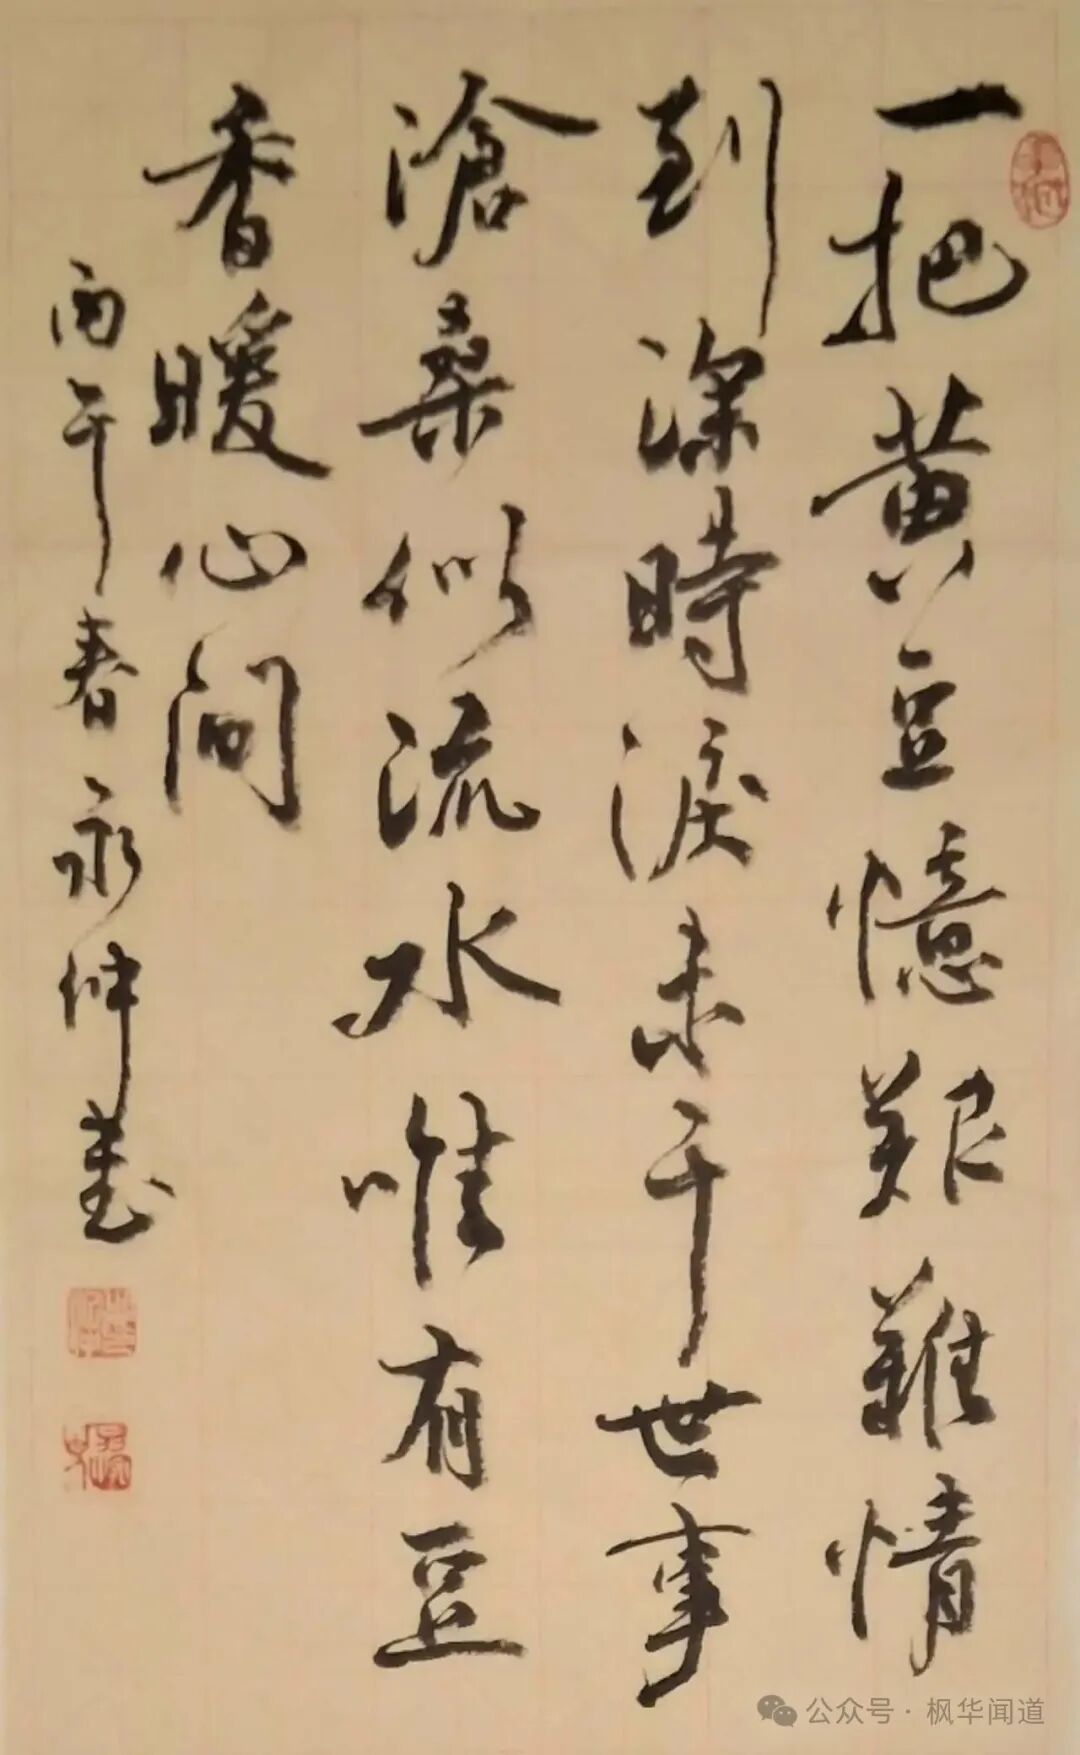 一把黄豆憶艱難情
到深時淚未干世事
滄桑似流水唯有豆
香暖心间
丙午春永仲書
公众号·枫华闻道